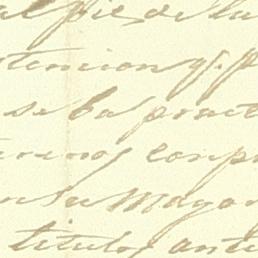 al pie de la
tencion q.e p
se ha pract
terrenos comp
en su Mayor
titulos anti